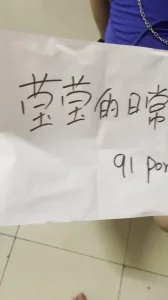 莹莹的日常
91 por